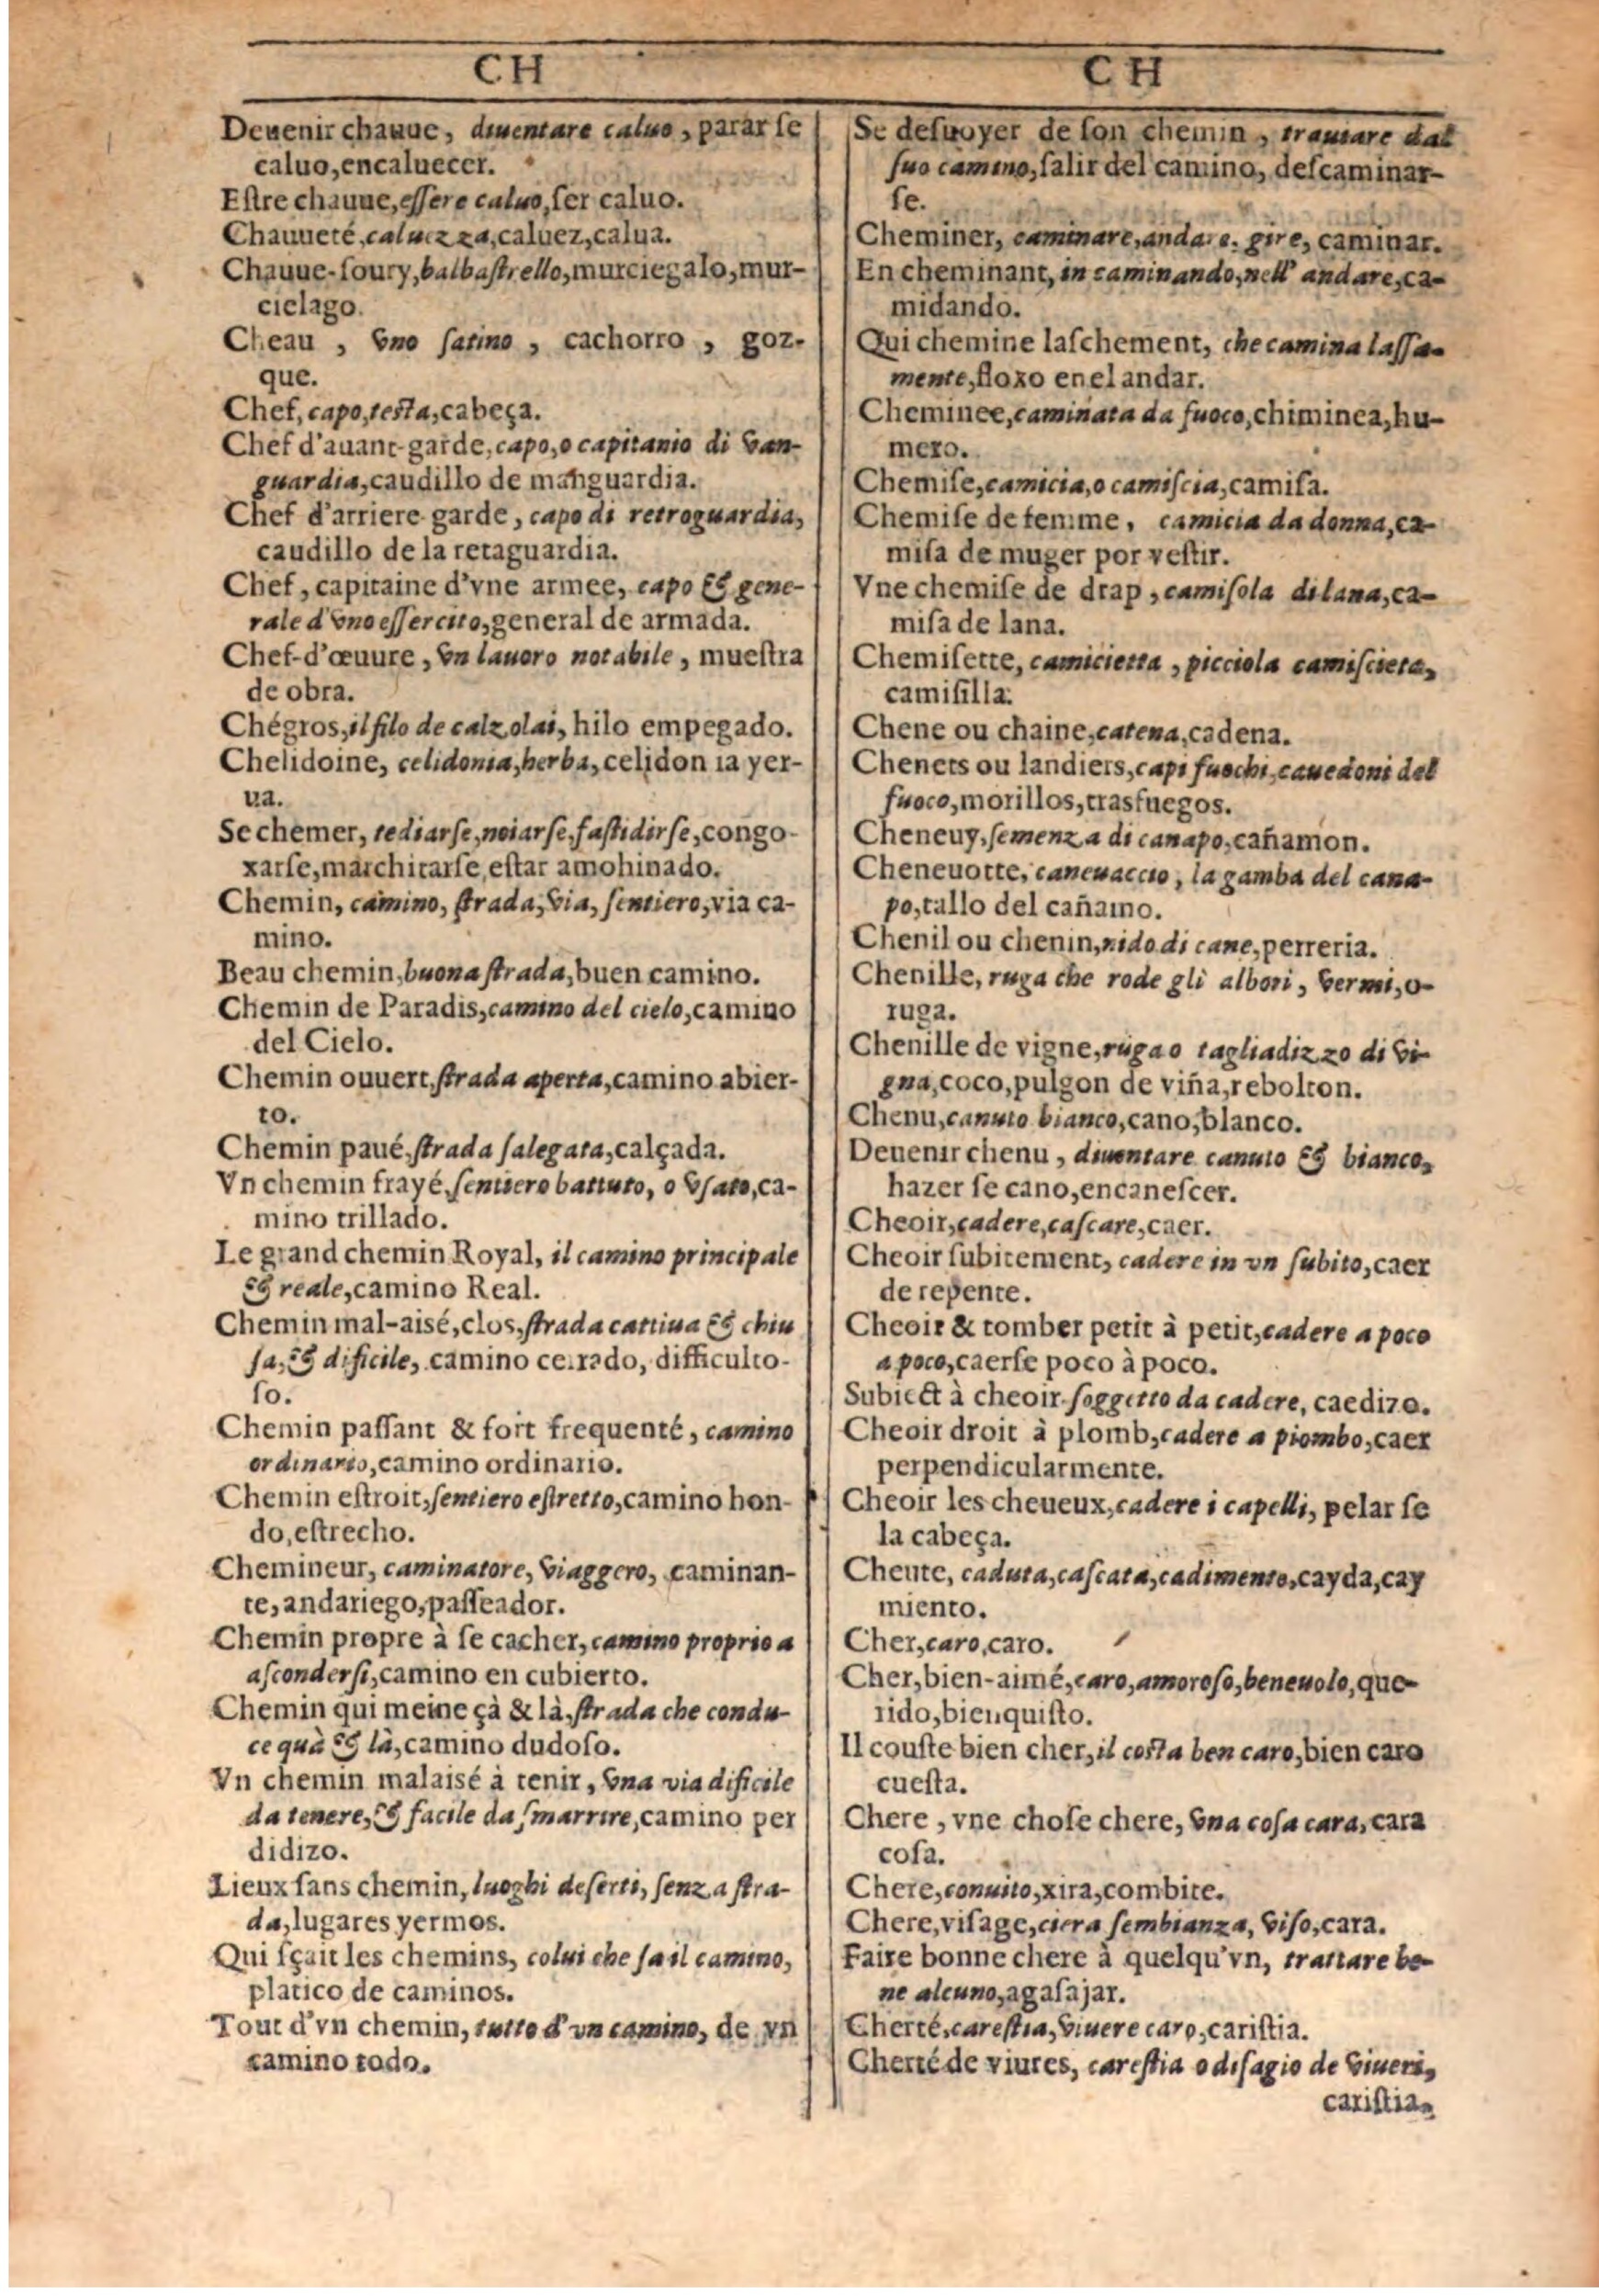 CH
Deuenir chauue, diuentare caluo, parar ſe
caluo,encaluecer.
Eſtre chauue,eſſere caluo,ſer caluo.
Chauueté,caluezza,caluez,calua.
Chauue-ſoury,balbaſtrello,murciegalo,mur-
cielago.
Cheau , vno ſatino , cachorro , goz-
que.
Chef, capo,teſta,cabeça.
Chef d'auant-garde,capo,o capitanio di van-
guardia,caudillo de manguardia.
Chef d'arriere garde, capo di retroguardia,
caudillo de la retaguardia.
Chef, capitaine d'vne armee, capo & gene-
rale d'vno eſſercito,general de armada.
Chef-d'œuure, vn lauoro notabile, mueſtra
de obra.
Chégros,il filo de calzolai, hilo empegado.
Chelidoine, celidonia,herba,celidon ia yer-
ua.
Se chemer, tediarſe,noiarſe,faſtidirſe,congo-
xarſe,marchitarſe,eſtar amohinado.
Chemin, camino, ſtrada, via, ſentiero,via ca-
mino.
Beau chemin,buona ſtrada,buen camino.
Chemin de Paradis,camino del cielo,camino
del Cielo.
Chemin ouuert,ſtrada aperta,camino abier-
to.
Chemin paué,ſtrada ſalegata,calçada.
Vn chemin frayé,ſentiero battuto, o vſato,ca-
mino trillado.
Le grand chemin Royal, il camino principale
& reale,camino Real.
Chemin mal-aisé,clos,ſtrada cattiua & chiu
ſa,& dificile, camino cerrado, difficulto-
ſo.
Chemin paſſant & fort frequenté, camino
ordinario,camino ordinario.
Chemin eſtroit,ſentiero eſtretto,camino hon-
do,eſtrecho.
Chemineur, caminatore, viaggero, caminan-
te,andariego,paſſeador.
Chemin propre à ſe cacher,camino proprio a
aſconderſi,camino en cubierto.
Chemin qui meine çà & là,ſtrada che condu-
ce quà & là,camino dudoſo.
Vn chemin malaisé à tenir, vna via dificile
da tenere,& facile da ſmarrire,camino per
didizo.
Lieux ſans chemin, luoghi deſerti, ſenza ſtra-
da,lugares yermos.
Qui ſçait les chemins, colui che ſa il camino,
platico de caminos.
Tout d'vn chemin, tutto d'vn camino, de vn
camino todo.
CH
Se deſuoyer de ſon chemin, trauiare dal
ſuo camino,ſalir del camino, deſcaminar-
ſe.
Cheminer, caminare,andare, gire, caminar.
En cheminant, in caminando,nell' andare,ca-
midando.
Qui chemine laſchement, che camina laſſa-
mente,floxo en el andar.
Cheminee,caminata da fuoco,chiminea,hu-
mero.
Chemiſe,camicia,o camiſcia,camiſa.
Chemiſe de femme, camicia da donna,ca-
miſa de muger por veſtir.
Vne chemiſe de drap, camiſola di lana,ca-
miſa de lana.
Chemiſette, camicietta, picciola camiſcieta,
camiſilla.
Chene ou chaine,catena,cadena.
Chenets ou landiers,capi fuochi,cauedoni del
fuoco,morillos,trasfuegos.
Cheneuy,ſemenza di canapo,cañamon.
Cheneuotte, caneuaccio, la gamba del cana-
po,tallo del cañamo.
Chenil ou chenin,nido di cane,perreria.
Chenille, ruga che rode gli albori, vermi,o-
ruga.
Chenille de vigne,ruga o tagliadizzo di vi-
gna,coco,pulgon de viña,rebolton.
Chenu,canuto bianco,cano,blanco.
Deuenir chenu, diuentare canuto & bianco,
hazer ſe cano,encaneſcer.
Cheoir,cadere,caſcare,caer.
Cheoir ſubitement, cadere in vn ſubito,caer
de repente.
Cheoir & tomber petit à petit,cadere a poco
a poco,caerſe poco à poco.
Subiect à cheoir ſoggetto da cadere, caedizo.
Cheoir droit à plomb,cadere a piombo,caer
perpendicularmente.
Cheoir les cheueux,cadere i capelli, pelar ſe
la cabeça.
Cheute, caduta,caſcata,cadimento,cayda,cay
miento.
Cher,caro,caro.
Cher,bien-aimé,caro,amoroſo,beneuolo,que-
rido,bienquiſto.
Il couſte bien cher,il coſta ben caro,bien caro
cueſta.
Chere, vne choſe chere, vna coſa cara, cara
coſa.
Chere,conuito,xira,combite.
Chere,viſage,ciera ſembianza, viſo,cara.
Faire bonne chere à quelqu'vn, trattare be-
ne alcuno,agaſajar.
Cherté,careſtia,viuere caro,cariſtia.
Cherté de viures, careſtia o diſagio de viueri,
cariſtia.